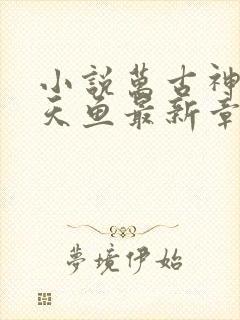 小說萬古神
天魚最新章
夢境伊始